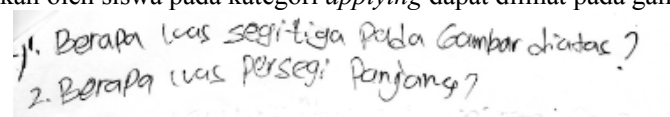 kan oleh siswa pada kategori applying dapat dilihat pada gam
1. Berapa luas segitiga Pada Gambar diatas ?
2. Berapa luas persegi Panjang ?